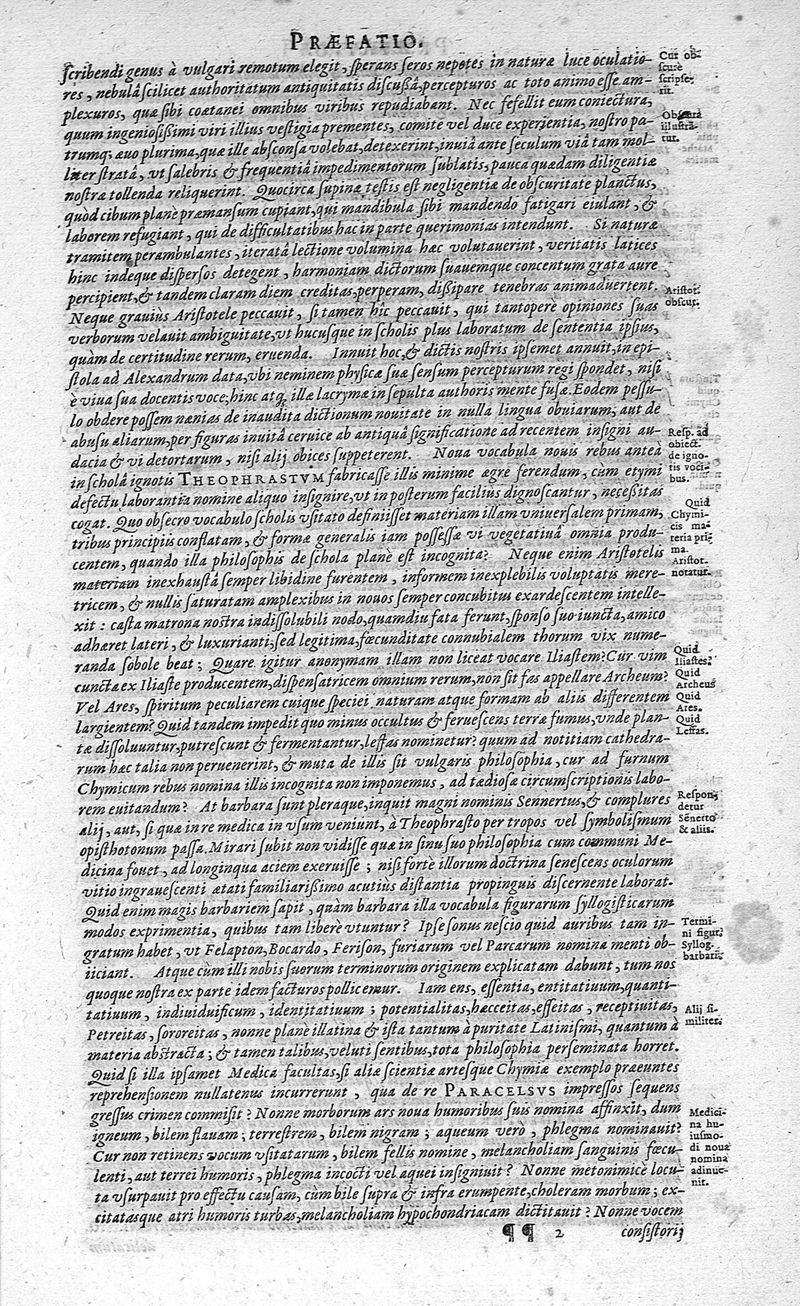 PRÆFATIO.
scribendi genus à vulgari remotum elegit, sperans seros nepotes in naturæ luce oculatio-
res, nebulâ scilicet authoritatum antiquitatis discussâ, percepturos ac toto animo esse am-
plexuros, quæ sibi coætanei omnibus viribus repudiabant. Nec fefellit eum coniectura,
quum ingeniosissimi viri illius vestigia prementes, comite vel duce experientia, nostro pa-
trumq; æuo plurima, quæ ille absconsa volebat, detexerint, inuiâ ante seculum viâ tam mol-
liter stratâ, vt salebris & frequentiâ impedimentorum sublatis, pauca quædam diligentiæ
nostræ tollenda reliquerint. Quocirca supinæ testis est negligentiæ de obscuritate planctus,
quòd cibum planè præmansum cupiant, qui mandibula sibi mandendo fatigari eiulant, &
laborem refugiant, qui de difficultatibus hac in parte querimonias intendunt. Si naturæ
tramitem perambulantes, iteratâ lectione volumina hæc volutauerint, veritatis latices
hinc indeque dispersos detegent, harmoniam dictorum suauemque concentum grata aure
percipient, & tandem claram diem creditas, perperam, dissipare tenebras animaduertent.
Neque grauius Aristotele peccauit, si tamen hîc peccauit, qui tantoperè opiniones suas
verborum velauit ambiguitate, vt hucusque in scholis plus laboratum de sententia ipsius,
quàm de certitudine rerum, eruenda. Innuit hoc, & dictis nostris ipsemet annuit, in epi-
stola ad Alexandrum data, vbi neminem physicæ suæ sensum percepturum regi spondet, nisi
è viua sua docentis voce; hinc atq; illæ lacrymæ in sepulta authoris mente fusæ. Eodem pessu-
lo obdere possem nænias de inaudita dictionum nouitate in nulla lingua obuiarum, aut de
abusu aliarum, per figuras inuitâ ceruice ab antiquâ significatione ad recentem insigni au-
dacia & vi detortarum, nisi alij obices suppeterent. Noua vocabula nouis rebus anteà
in scholâ ignotis THEOPHRASTVM fabricasse illis minime ægre ferendum, cùm etymi
defectu laborantia nomine aliquo insignire, vt in posterum facilius dignoscantur, necessitas
cogat. Quo obsecro vocabulo scholis vsitato definiisset materiam illam vniuersalem primam,
tribus principiis conflatam, & formæ generalis iam possessæ vi vegetatiuâ omnia produ-
centem, quando illa philosophis de schola planè est incognita? Neque enim Aristotelis
materiam inexhaustâ semper libidine furentem, informem inexplebilis voluptatis mere-
tricem, & nullis saturatam amplexibus in nouos semper concubitus exardescentem intelle-
xit: casta matrona nostra indissolubili nodo, quamdiu fata ferunt, sponso suo iuncta, amico
adhæret lateri, & luxurianti, sed legitima, fœcunditate connubialem thorum vix nume-
randa sobole beat; Quare igitur anonymam illam non liceat vocare Iliastem? Cur vim
cuncta ex Iliaste producentem, dispensatricem omnium rerum, non sit fas appellare Archeum?
Vel Ares, spiritum peculiarem cuique speciei naturam atque formam ab aliis differentem
largientem? Quid tandem impedit quo minus occultus & feruescens terræ fumus, vnde plan-
tæ dissoluuntur, putrescunt & fermentantur, leffas nominetur? quum ad notitiam cathedra-
rum hæc talia non peruenerint, & muta de illis sit vulgaris philosophia, cur ad furnum
Chymicum rebus nomina illis incognita non imponemus, ad tædiosæ circumscriptionis labo-
rem euitandum? At barbara sunt pleraque, inquit magni nominis Sennertus, & complures
alij, aut, si quæ in re medica in vsum veniunt, à Theophrasto per tropos vel symbolismum
opisthotonum passa. Mirari subit non vidisse quæ in sinu suo philosophia cum communi Me-
dicina fouet, ad longinqua aciem exeruisse; nisi fortè illorum doctrina senescens oculorum
vitio ingrauescenti ætati familiarissimo acutiùs distantia propinguis discernente laborat.
Quid enim magis barbariem sapit, quàm barbara illa vocabula figurarum syllogisticarum
modos exprimentia, quibus tam liberè vtuntur? Ipse sonus nescio quid auribus tam in-
gratum habet, vt Felapton, Bocardo, Ferison, furiarum vel Parcarum nomina menti ob-
iiciant. Atque cùm illi nobis suorum terminorum originem explicatam dabunt, tum nos
quoque nostra ex parte idem facturos pollicemur. Iam ens, essentia, entitatiuum, quanti-
tatiuum, indiuiduificum, identitatiuum; potentialitas, hæcceitas, esseitas, receptiuitas,
Petreitas, sororeitas, nonne planè illatina & ista tantum à puritate Latinismi, quantum à
materia abstracta; & tamen talibus, veluti sentibus, tota philosophia perseminata horret.
Quid si illa ipsamet Medica facultas, si aliæ scientiæ artesque Chymiæ exemplo præeuntes
reprehensionem nullatenus incurrerunt, qua de re PARACELSVS impressos sequens
gressus crimen commisit? Nonne morborum ars noua humoribus suis nomina affinxit, dum
igneum, bilem flauam; terrestrem, bilem nigram; aqueum verò, phlegma nominauit?
Cur non retinens vocum vsitatarum, bilem fellis nomine, melancholiam sanguinis fœcu-
lenti, aut terrei humoris, phlegma incocti vel aquei insigniuit? Nonne metonimicè locu-
ta vsurpauit pro effectu causam, cùm bile supra & infra erumpente, choleram morbum; ex-
citatasque atri humoris turbas, melancholiam hypochondriacam dictitauit? Nonne vocem
¶¶ 2 consistorij
Cur ob-
scurè
scripse-
rit.
Obscura
illustrã-
tur.
Aristot.
obscur.
Resp. ad
obiect.
de igno-
tis voci-
bus.
Quid
Chymi-
cis ma-
teria pri-
ma.
Aristot.
notatur.
Quid
Iliastes.
Quid
Archeus
Quid
Ares.
Quid
Leffas.
Respon-
detur
Sẽnerto
& aliis.
Termi-
ni figur.
Syllog.
barbari.
Alij si-
militer.
Medici-
na hu-
iusmo-
di noua
nomina
adinue-
nit.